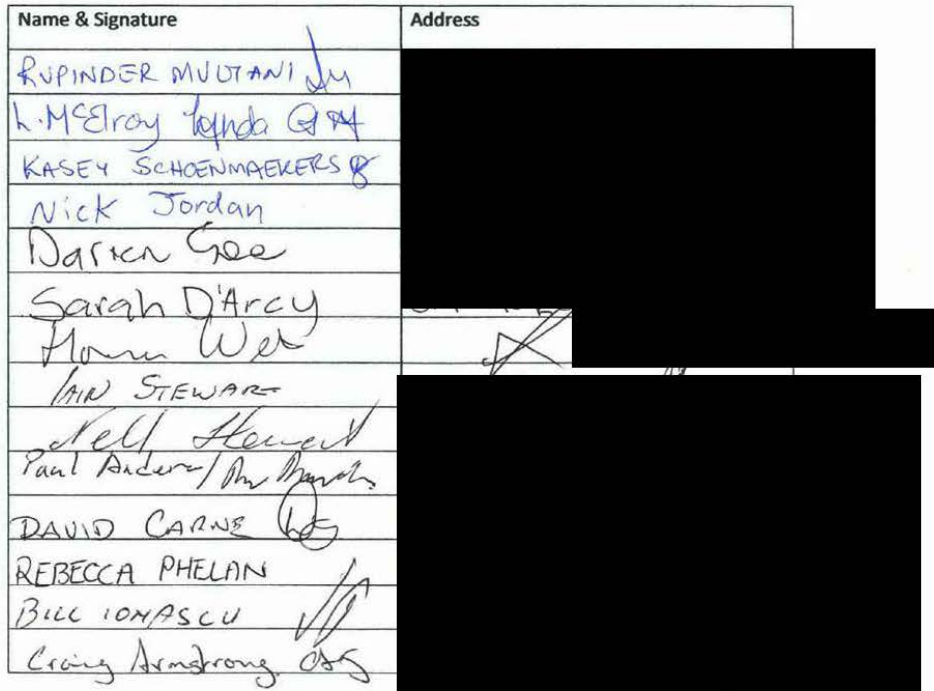 Name & Signature Address
RUPINDER MULTANI
L. McElroy Lynda
KASEY SCHOENMAEKERS
Nick Jordan
Darren Gee
Sarah D'Arcy
IAIN STEWART
Nell Stewart
Paul
DAVID CARNE
REBECCA PHELAN
BILL IOMASCU
Craig Armstrong